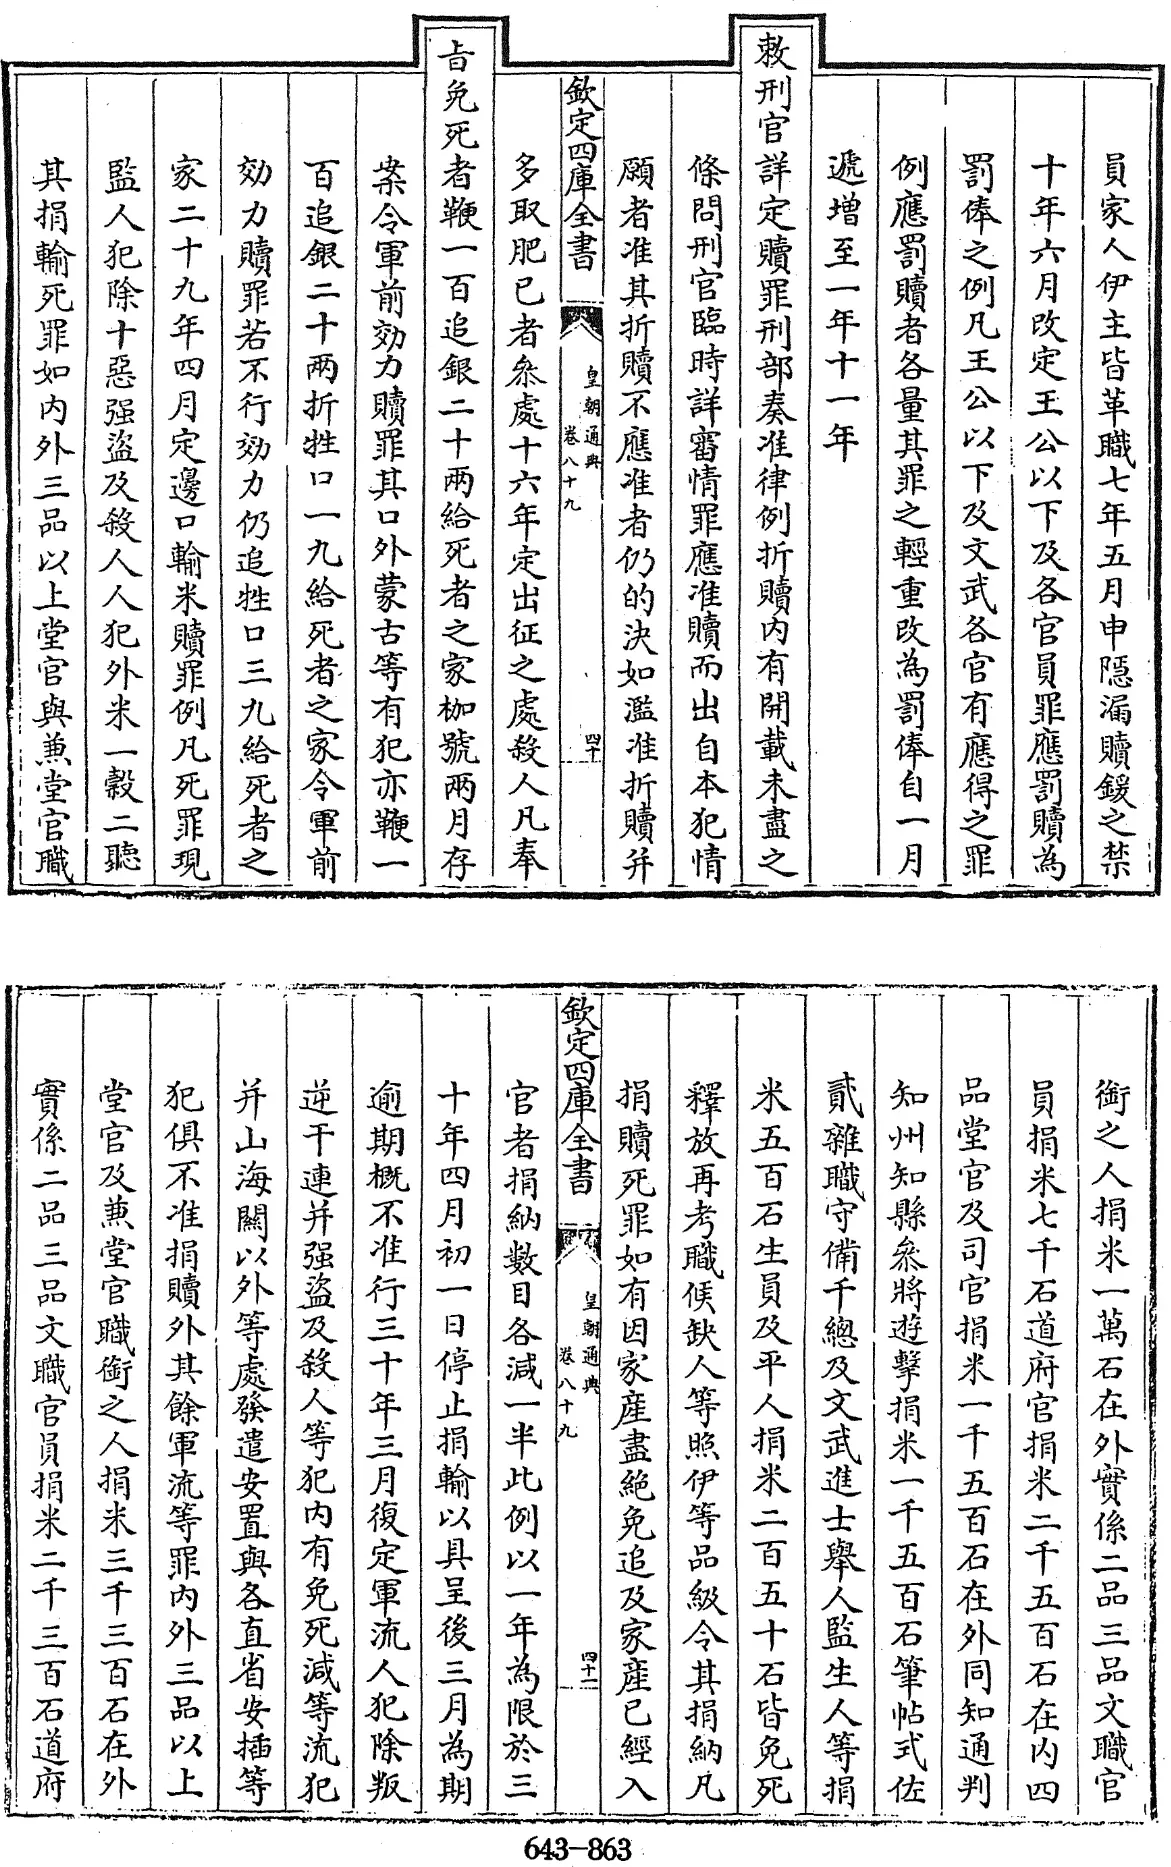 員家人伊主皆革職七年五月申隱漏贖鍰之禁
十年六月改定王公以下及各官員罪應罰贖為
罰俸之例凡王公以下及文武各官有應得之罪
例應罰贖者各量其罪之輕重改為罰俸自一月
遞增至一年十一年
敕刑官詳定贖罪刑部奏准律例折贖内有開載未盡之
條問刑官臨時詳審情罪應准贖而出自本犯情
願者准其折贖不應准者仍的決如濫准折贖并
欽定四庫全書
皇朝通典
卷八十九
四十
多取肥已者叅處十六年定出征之處殺人凡奉
旨免死者鞭一百追銀二十兩給死者之家枷號兩月存
案令軍前効力贖罪其口外蒙古等有犯亦鞭一
百追銀二十兩折牲口一九給死者之家令軍前
効力贖罪若不行効力仍追牲口三九給死者之
家二十九年四月定邊口輸米贖罪例凡死罪現
監人犯除十惡强盜及殺人人犯外米一穀二聽
其捐輸死罪如内外三品以上堂官與兼堂官職
銜之人捐米一萬石在外實係二品三品文職官
員捐米七千石道府官捐米二千五百石在内四
品堂官及司官捐米一千五百石在外同知通判
知州知縣叅將遊擊捐米一千五百石筆帖式佐
貳雜職守備千總及文武進士舉人監生人等捐
米五百石生員及平人捐米二百五十石皆免死
釋放再考職候缺人等照伊等品級令其捐納凡
捐贖死罪如有因家産盡絶免追及家産已經入
欽定四庫全書
皇朝通典
卷八十九
四十一
官者捐納數目各減一半此例以一年為限於三
十年四月初一日停止捐輸以具呈後三月為期
逾期概不准行三十年三月復定軍流人犯除叛
逆干連并强盜及殺人等犯内有免死減等流犯
并山海關以外等處發遣安置與各直省安插等
犯俱不准捐贖外其餘軍流等罪内外三品以上
堂官及兼堂官職銜之人捐米三千三百石在外
實係二品三品文職官員捐米二千三百石道府
643-863